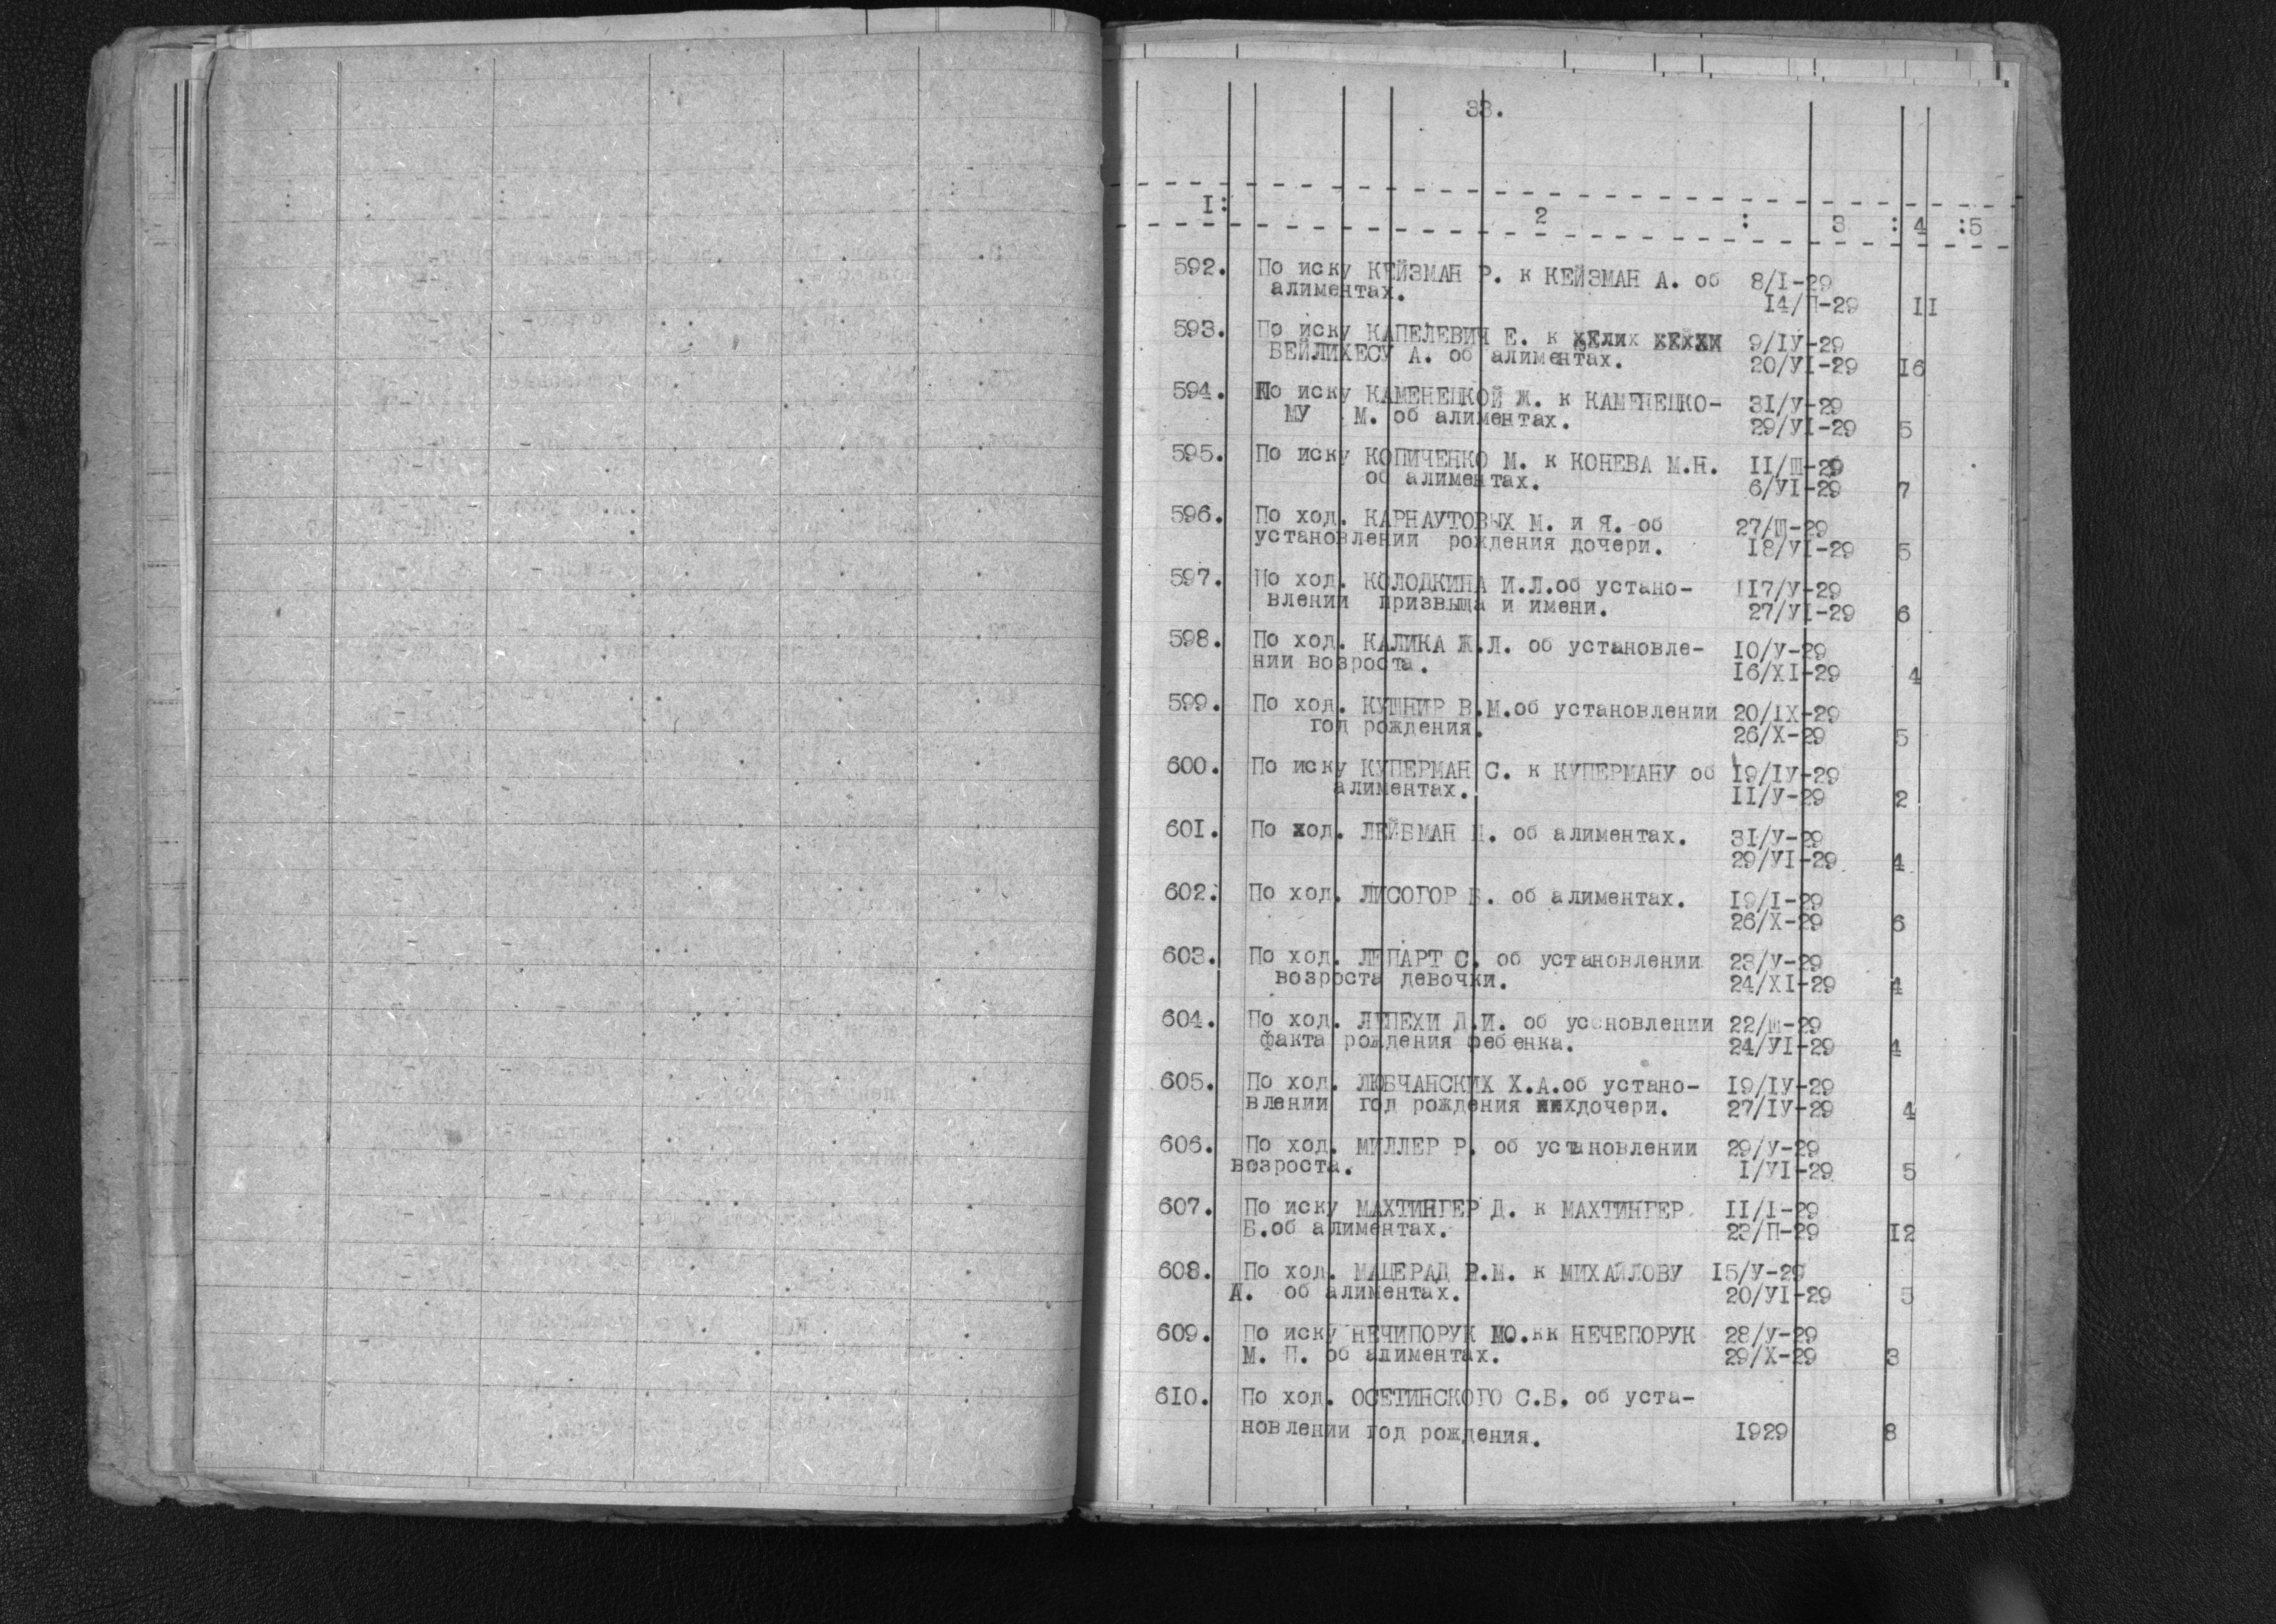 33.
I: 2 : 3 : 4 :5
592. По иску КЕЙЗМАН Р. к КЕЙЗМАН А. об 8/I-29
алиментах. I4/П-29 II
593. По иску КАПЕЛЕВИЧ Е. к 9/IУ-29
БЕЙЛИХЕСУ А. об алиментах. 20/УI-29 I6
594. По иску КАМЕНЕЦКОЙ Ж. к КАМЕНЕЦКО- 3I/У-29
МУ М. об алиментах. 29/УI-29 5
595. По иску КОПИЧЕНКО М. к КОНЕВА М.Н. II/Ш-29
об алиментах. 6/УI-29 7
596. По ход. КАРНАУТОВЫХ М. и Я. об 27/Ш-29
установлении рождения дочери. I8/УI-29 5
597. По ход. КОЛОДКИНА И.Л.об устано- II7/У-29
влении призвыща и имени. 27/УI-29 6
598. По ход. КАЛИКА Ж.Л. об установле- I0/У-29
нии возроста. I6/XI-29 4
599. По ход. КУШНИР В.М.об установлении 20/IX-29
год рождения. 26/X-29 5
600. По иску КУПЕРМАН С. к КУПЕРМАНУ об I9/IУ-29
алиментах. II/У-29 2
60I. По ход. ЛЕЙБМАН об алиментах. 3I/У-29
29/УI-29 4
602. По ход. ЛИСОГОР об алиментах. I9/I-29
26/X-29 6
603. По ход. ЛЕПАРТ С. об установлении 23/У-29
возроста девочки. 24/XI-29 4
604. По ход. ЛЕПЕХИ Д.И. об усоновлении 22/Ш-29
факта рождения ребенка. 24/УI-29 4
605. По ход. ЛЮБЧАНСКИХ Х.А.об устано- I9/IУ-29
влении год рождения дочери. 27/IУ-29 4
606. По ход. МИЛЛЕР Р. об установлении 29/У-29
возроста. I/УI-29 5
607. По иску МАХТИНГЕР Д. к МАХТИНГЕР II/I-29
Б.об алиментах. 23/П-29 I2
608. По ход. МАЦЕРАД Р.М. к МИХАЙЛОВУ I5/У-29
А. об алиментах. 20/УI-29 5
609. По иску НЕЧИПОРУК МО.кк НЕЧЕПОРУК 28/У-29
М. П. об алиментах. 29/X-29 3
6I0. По ход. ОСЕТИНСКОГО С.Б. об уста-
новлении год рождения. I929 8